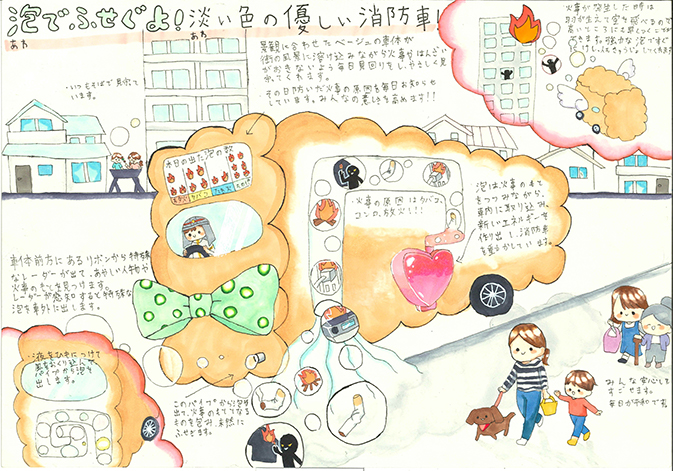 泡でふせぐよ!淡い色の優しい消防車!
あわ
あわ
景観に合わせたベージュの車体が
街の風景に溶け込みながら火事がはんざい
がおきないよう毎日見回りをしやさしく見
守ってくれます。
その日防いだ火事の原因を毎日お知らせ
しています。みんなの意しきを高めます!!
火事が発生した時は
羽が生えて空を飛べるので
高いところにも早くつくことが
できます。強力な泡ですぐ
いつもそばで見守って
います。
本日の出た泡の数
火事の原因はタバコ、
コンロ、放火!!
泡は火事のもと
をつつみながら、
車内に取り込み、
新しいエネルギーを
作り出し、消防車
を動かしています。
車体前方にあるリボンから特殊
なレーダーが出て、あやしい人物や
火事のもとを見つけます。
レーダーが感知すると特殊な
泡を車外に出します。
液をひもにつけて
パイプから泡を
出します。
このパイプから泡が
出て、火事のもとになる
ものを包み、未然に
ふせぎます。
みんな安心して
すごせます。
毎日が平和です。